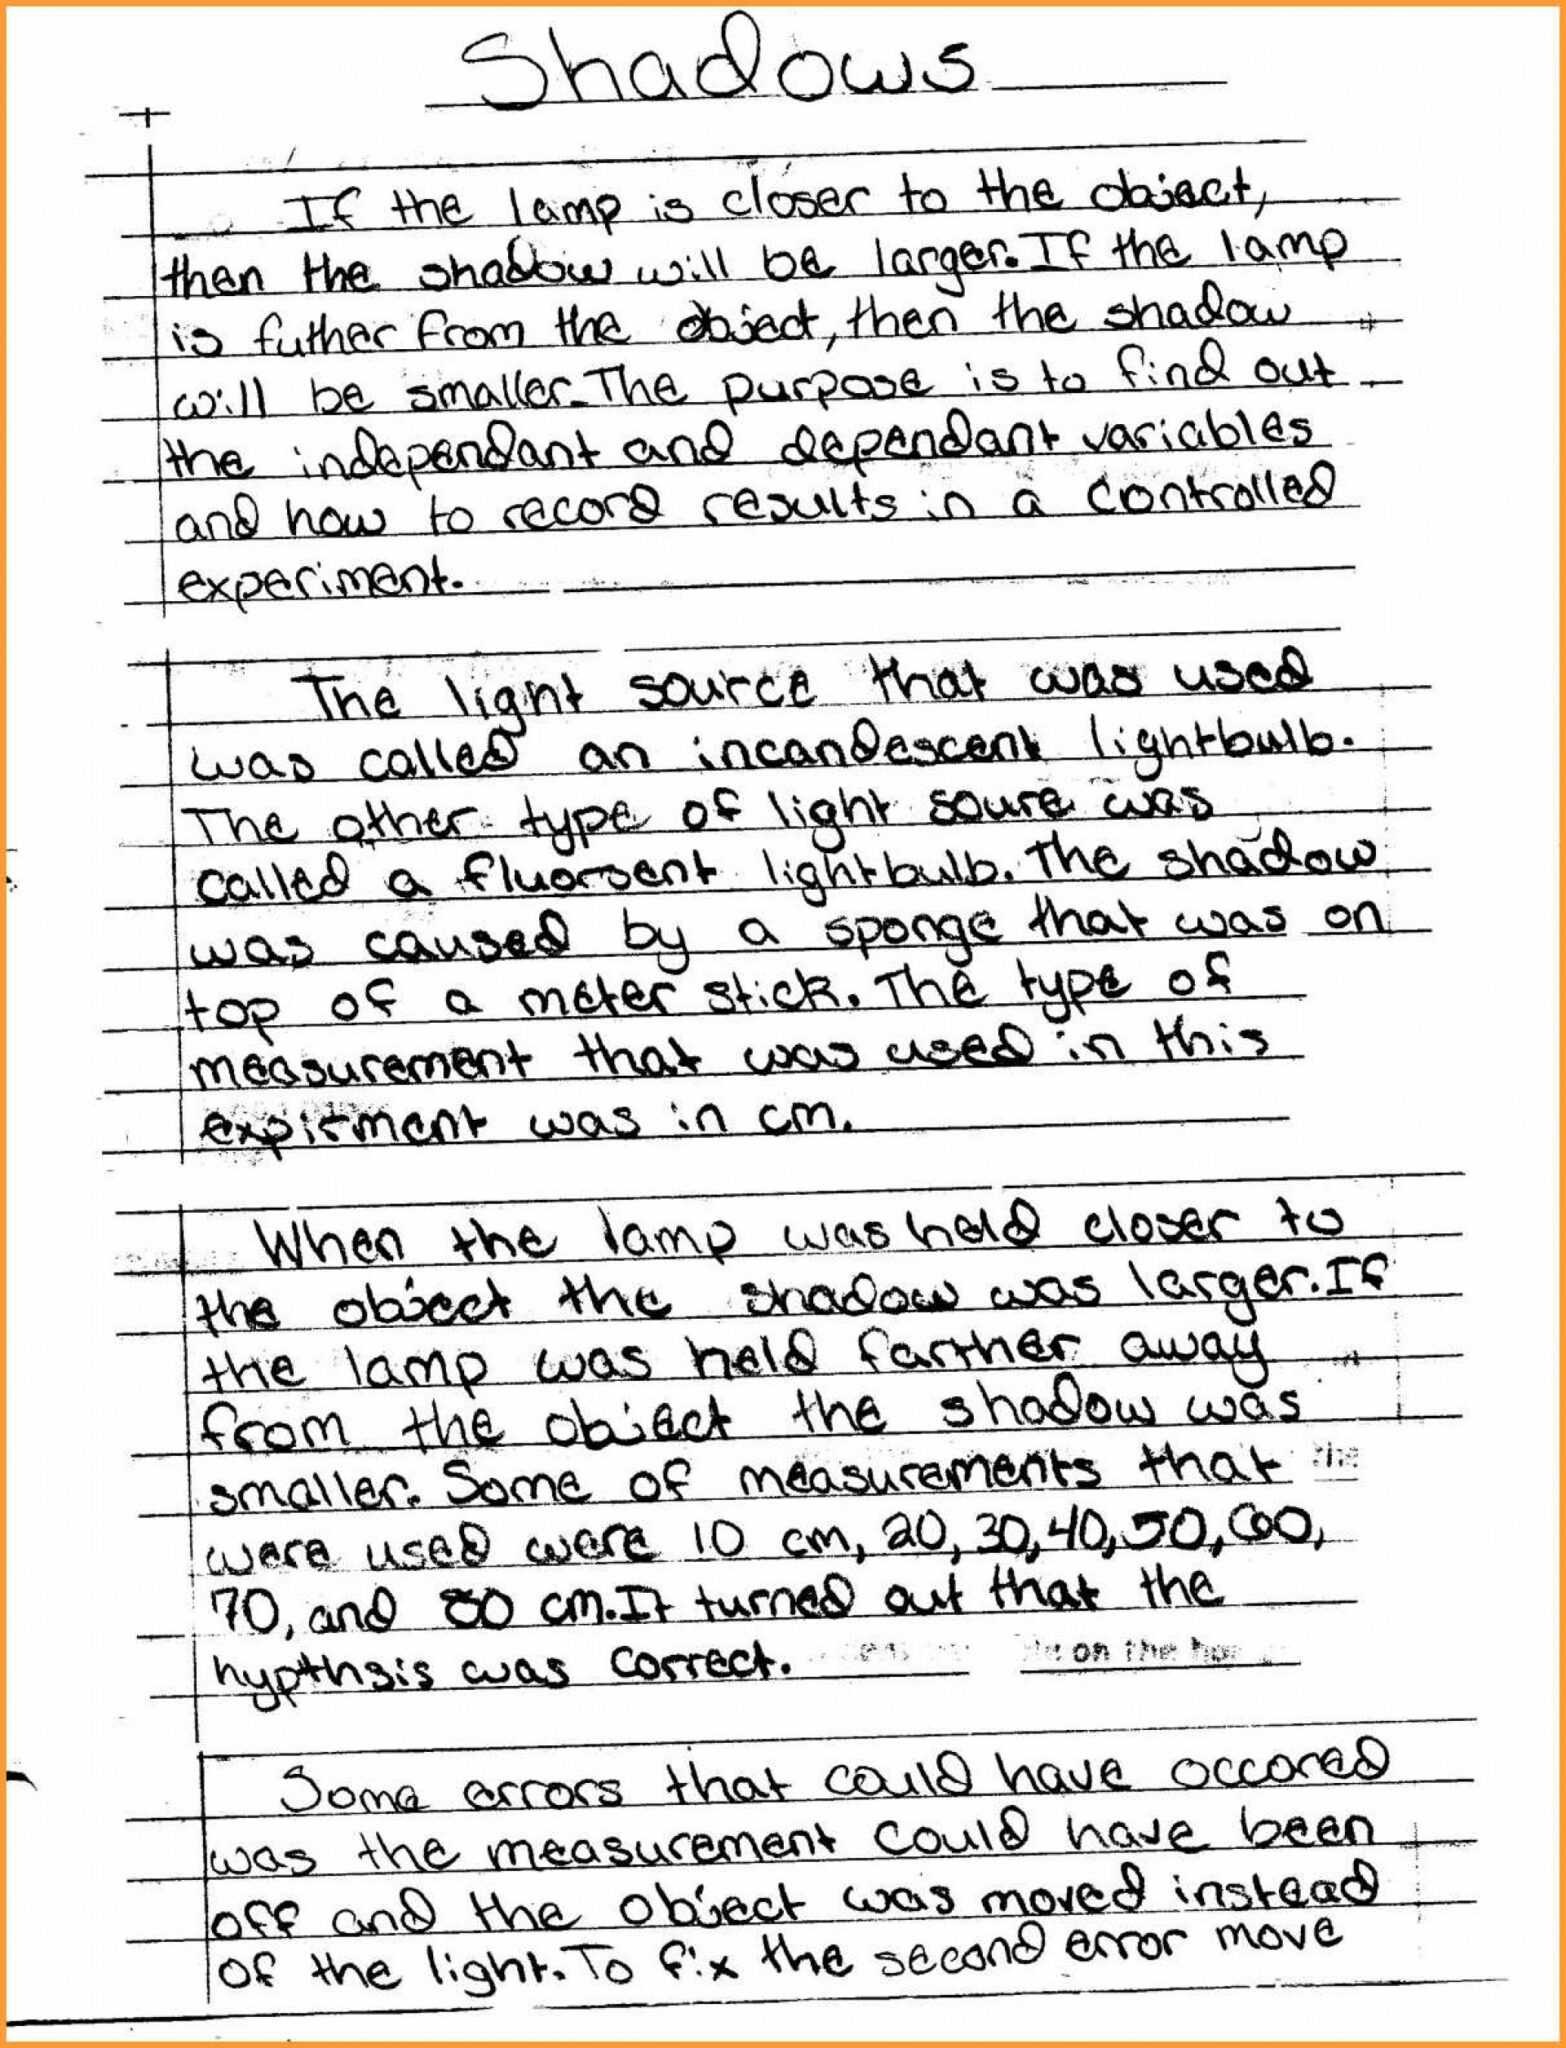 Shadows
If the lamp is closer to the object,
then the shadow will be larger. If the lamp
is futher from the object, then the shadow
will be smaller. The purpose is to find out
the independant and dependant variables
and how to record results in a controlled
experiment.
The light source that was used
was called an incandescent lightbulb.
The other type of light soure was
called a fluorsent lightbulb. The shadow
was caused by a sponge that was on
top of a meter stick. The type of
measurement that was used in this
expirment was in cm.
When the lamp was held closer to
the object the shadow was larger. If
the lamp was held farther away
from the object the shadow was
smaller. Some of measurements that the
were used were 10 cm, 20, 30, 40, 50, 60,
70, and 80 cm. It turned out that the
hypthsis was correct. on the
Some errors that could have occored
was the measurement could have been
off and the object was moved instead
of the light. To fix the second error move